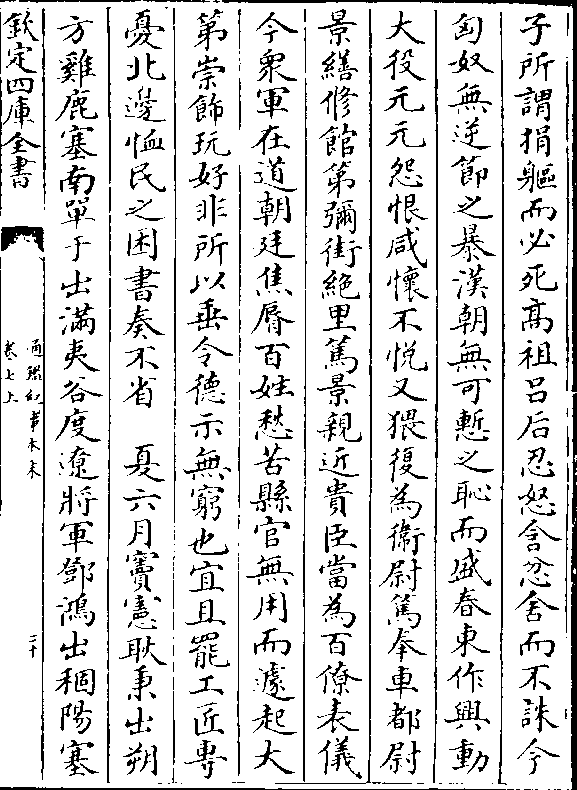 子所謂捐軀而必死高祖呂后忍怒含忿舍而不誅今
匈奴無逆節之罪漢朝無可慙之恥而盛春東作興動
大役元元怨恨咸懷不悅又猥復為衞尉篤奉車都尉
景繕修館第彌街絶里篤景親近貴臣當為百僚表儀
今衆軍在道朝廷焦唇百姓愁苦縣官無用而遽起大
第崇飾玩好非所以垂令德示無窮也宜且罷工匠専
憂北邊恤民之困書奏不省　夏六月竇憲耿秉出朔
方雞鹿塞南單于出滿夷谷度遼將軍鄧鴻出稒陽塞
欽定四庫全書
通鑑紀事本末
卷七上
二十